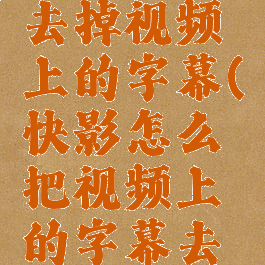 去掉视频
上的字幕(
快影怎么
把视频上
的字幕去